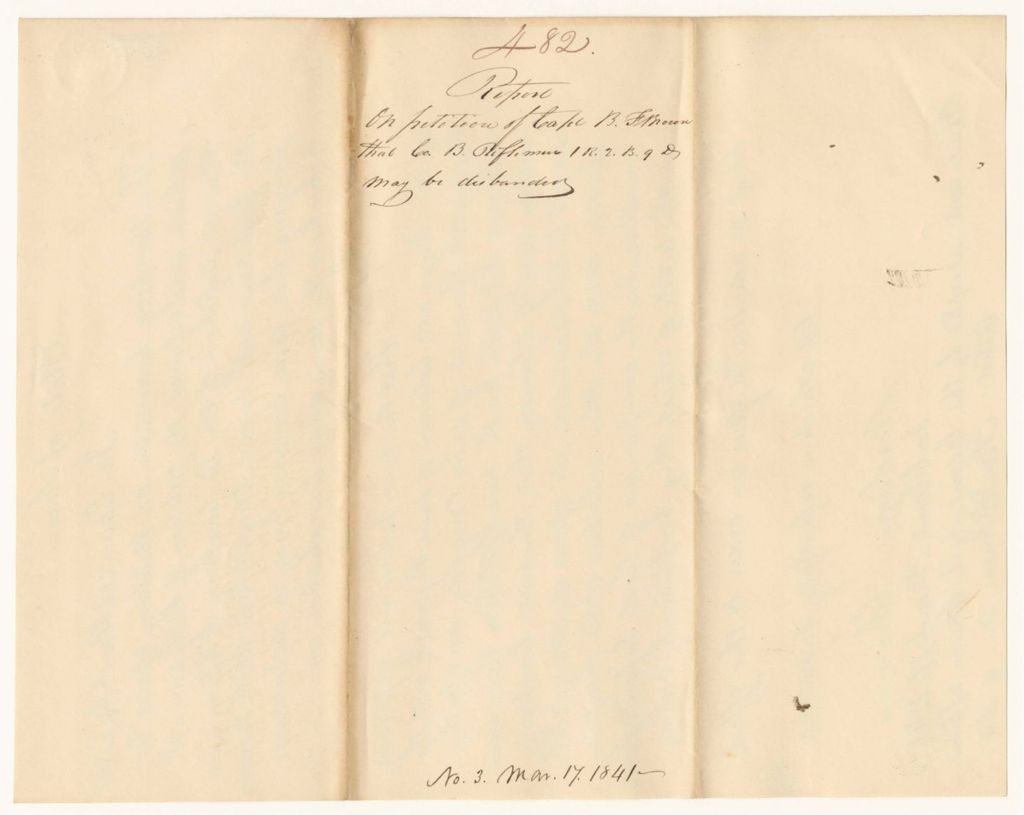 482.
Report
On petition of Capt B. F. Brown
that Co. B. Riflemen 1 R. 2. B. 9 D
may be disbanded
No. 3. Mar. 17. 1841